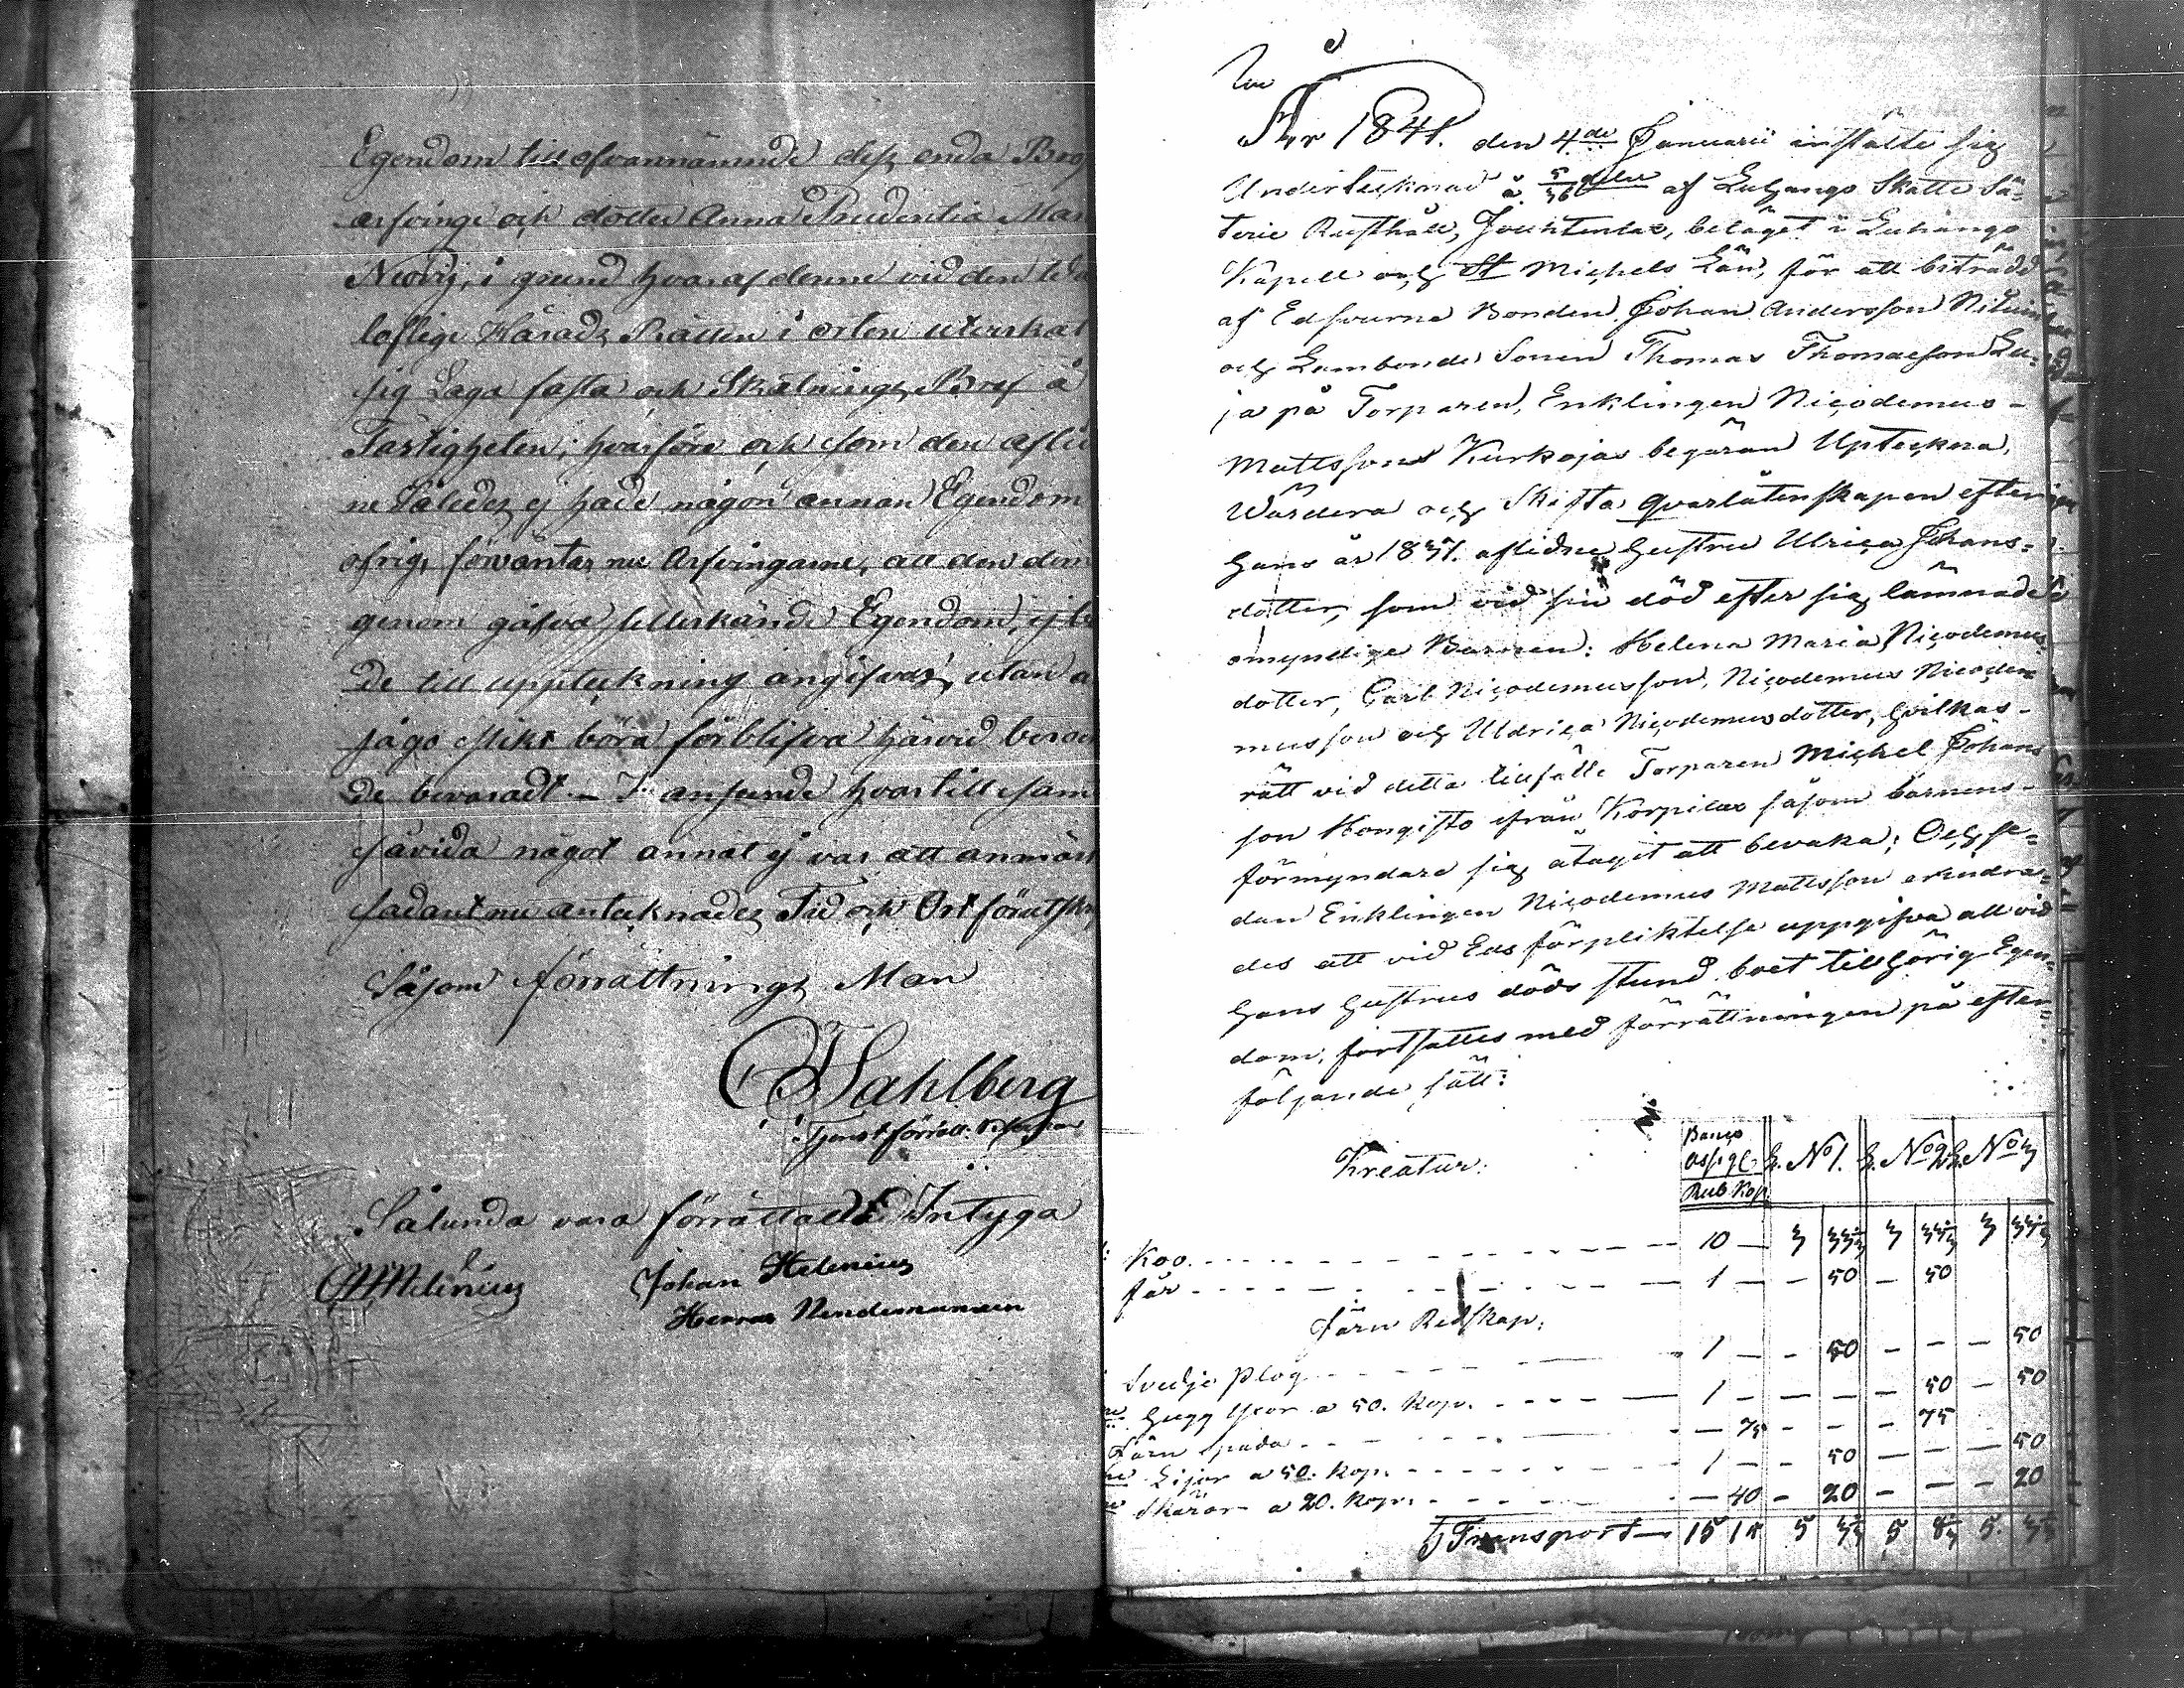 Egendom till ofvannämnde desz enda Bröst
arfvinge och dotter Anna Prudentia Mar
i grund hvaraf denne vid den
laflige Härads Rätten i orten utverkat
sig Laga fasta och Skötnings Bref å
Fastigheten; hvarföre och som den aflid
ne Således ej hade någon annan Egendom
öfrig, förväntar nu Arfvingarne, att den dem
genom gåfva tillerkände Egendom, ej
de till uppteckning angifvas, utan
böra förblifva härvid
de bevaradt. – I anseende hvartill samt
såvida något annat ej var att anmärk
sådant nu antecknades Tid och Ort förutskr
Såsom förrättnings Man
Sahlberg
Tjenstförrätt.
Sålunda vara förrättadt Intyga
Helenius Johan Helenius
Herman
År 1841. den 4de Januarii instälte sig
Undertecknad å 5/36 delar af Luhango Skatte Sä=
terie Rusthåll, Jouhtenlax, beläget i Luhango
Kapell och St Michels Län, för att biträdd
af Edsvurne Bonden Johan Andersson
och Landbonde Sonen Thomas Thomasson La=
ja på Torparen, Enklingen Nicodemus –
Mattssons Kurkajas begäran Upteckna,
Wärdera och Skifta qvarlåtenskapen efter
hans år 1837. aflidne Hustru Ulrica Johans=
dotter, som vid sin död efter sig lämnade
omyndige Barnen: Helena Maria Nicodemus
dotter, Carl Nicodemusson, Nicodemus Nicode=
musson och Uldrica Nicodemusdotter, hvilkas –
rätt vid detta tillfälle Torparen Michel Johans
son Hongisto ifrån Korpilax såsom barnens –
förmyndare sig åtagit att bevaka; Och se=
dan Enklingen Nicodemus Mattsson erindra=
des att vid Eds förpliktelse uppgifva all vid
hans hustrus döds stund boet tillhörig Egen=
dom, fortsattes med förrättningen på efter=
följande sätt:
Kreatur. Banco Assign. Rub. Kop. L. No 1. L. No 2. L. No 3
Koo. 10 – 3 33 1/3 3 33 1/3 3 33 1/3
får 1 – – 50 – 50
Järn Redskap.
Svedje Plog 1 – – 50 – – – 50
Hugg Yxor a 50. Kop. 1 – – – – 50 – 50
Järn Spada – 75 – – – 75
Lijor a 50. Kop. 1 – – 50 – – – 50
Skäror a 20. Kop. – 40 – 20 – – – 20
Transport 15 15 5